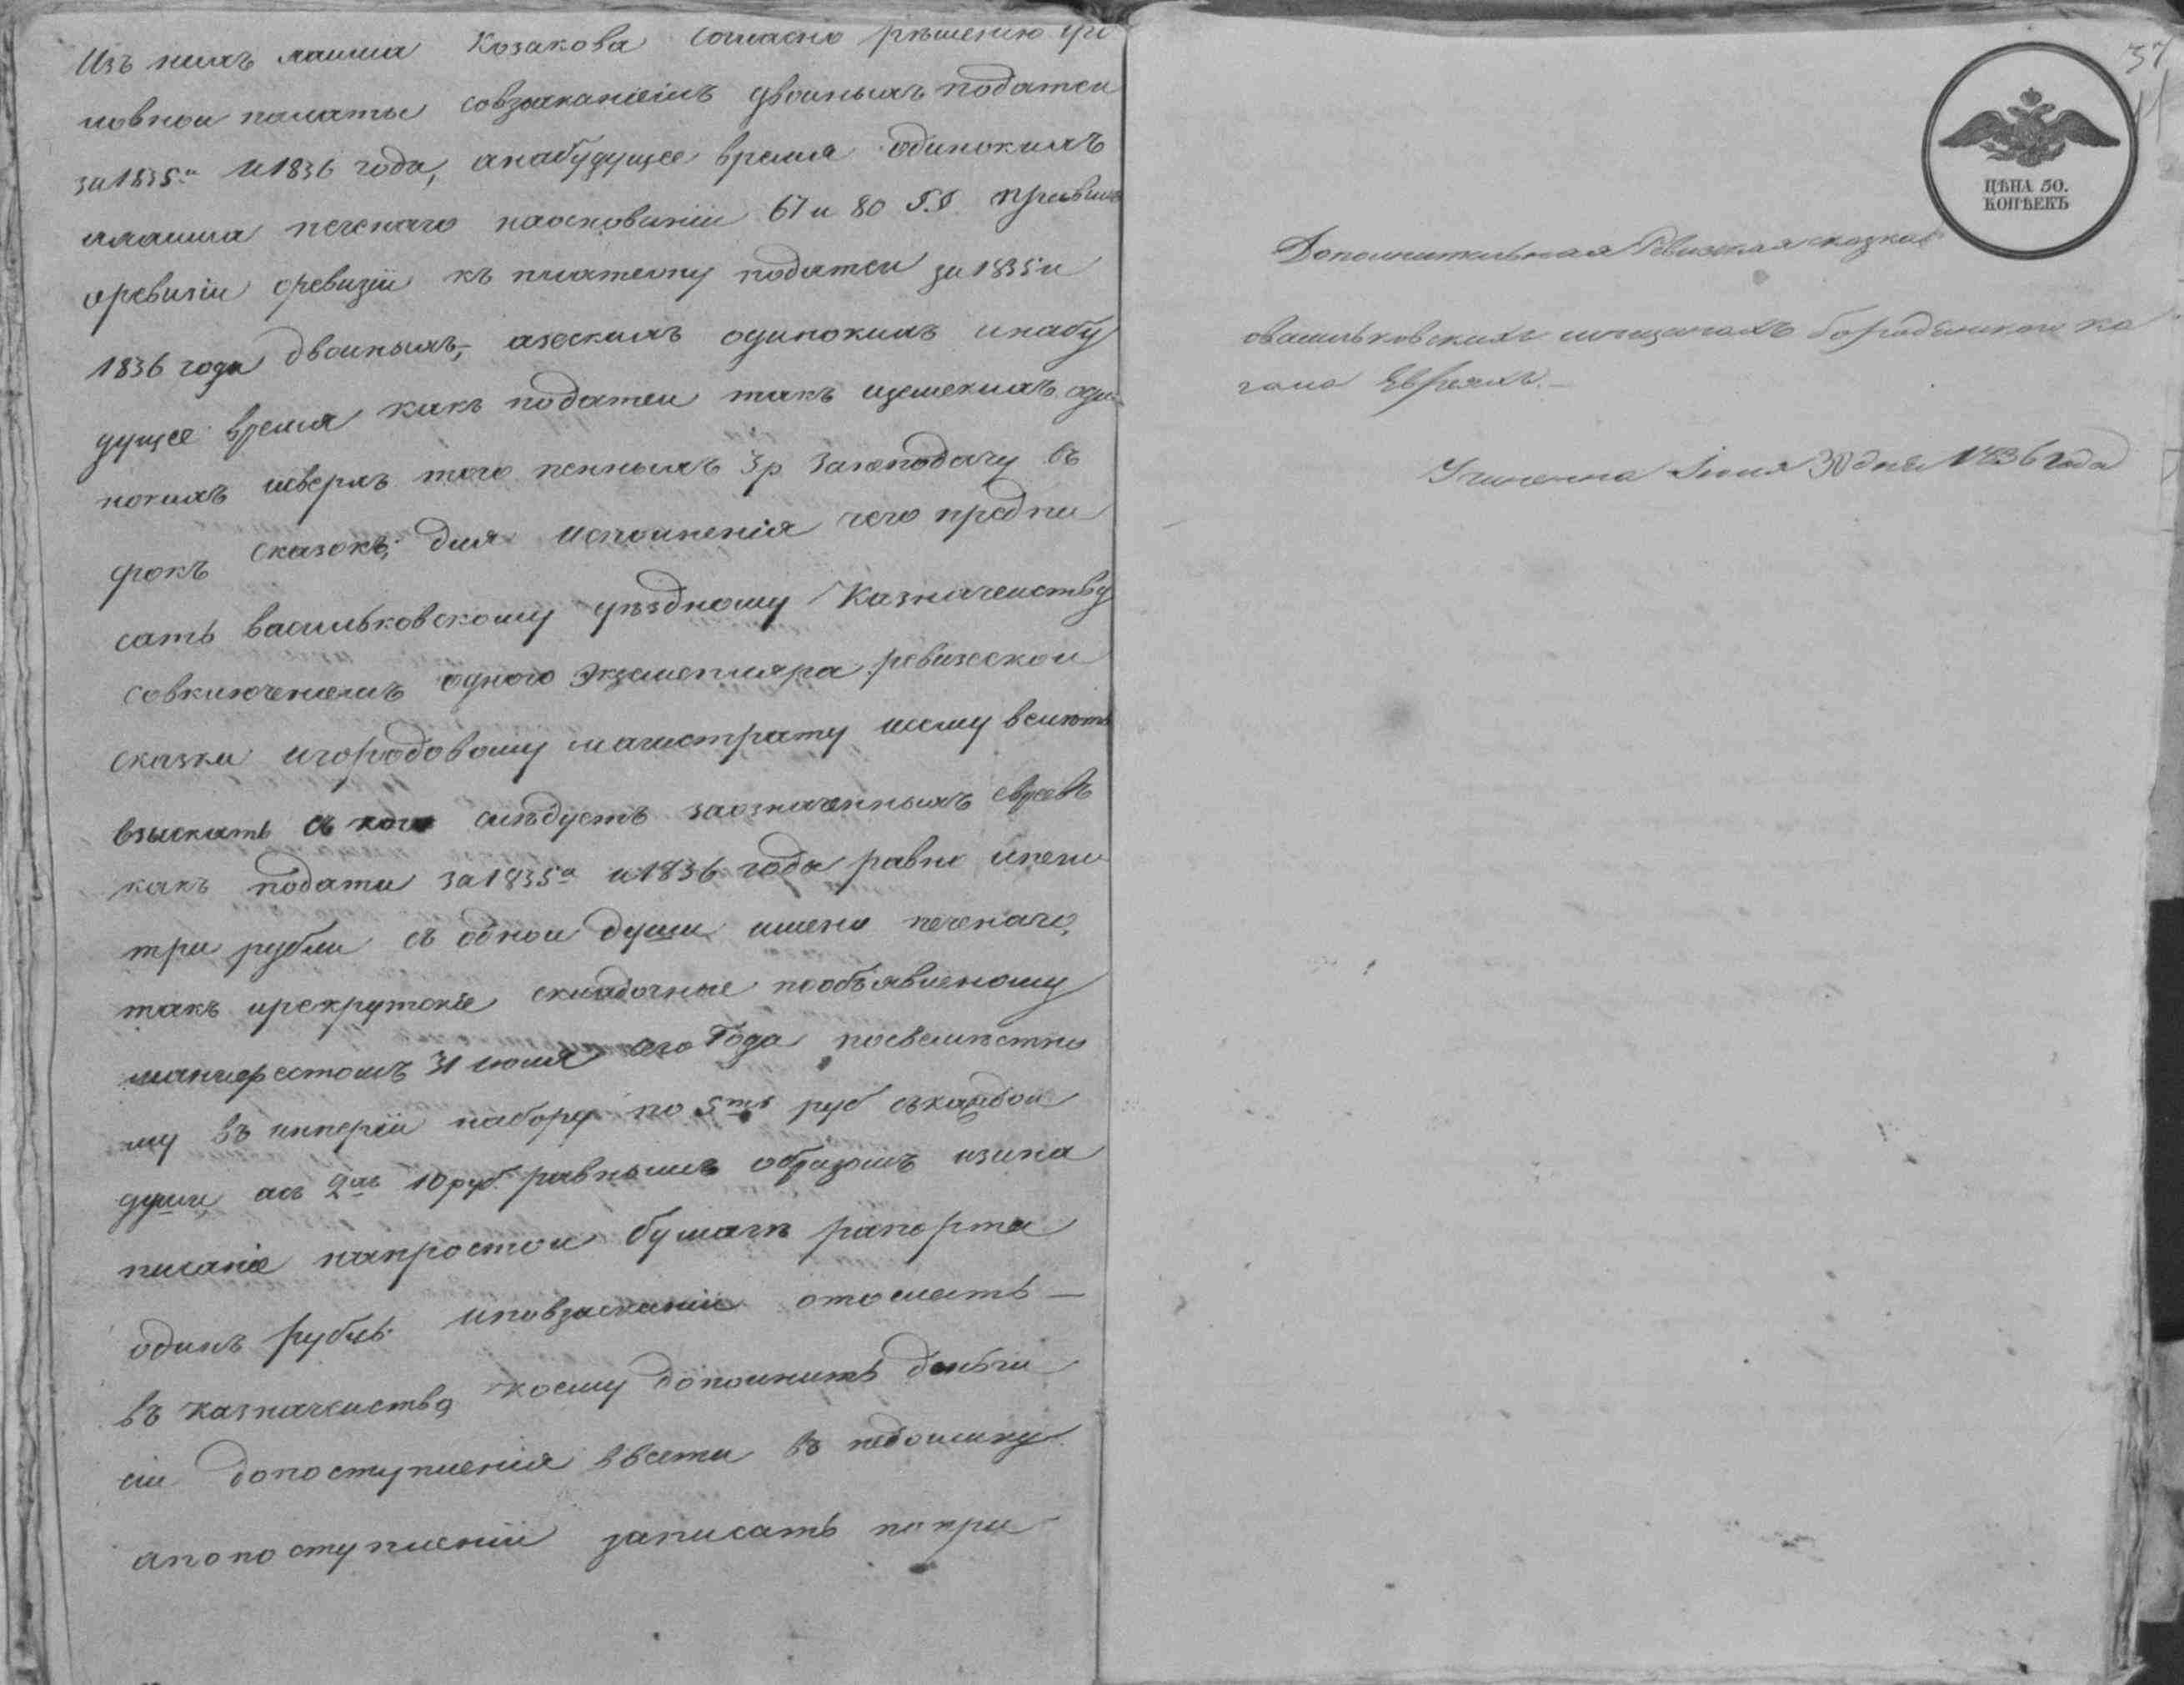 Изъ нихъ лашма Козакова согласно рѣшенію уго
ловной палаты совзысканіемъ двойныхъ податей
за 1835й и 1836 года, анабудущее время одинокихъ
печенаго наоснованіи 67 и 80 §.§. правилъ
оревизіи къ платежу податей за 1835 и
1836 года двойныхъ, одинокихъ инабу
дущее время какъ податей такъ иземскихъ оди
нокихъ исверхъ того пенныхъ 3 р занеподачу въ
срокъ сказокъ; для исполненія чего предпи
сать васильковскому уѣздному Казначейству
совключеніемъ одного экземпляра ревизской
сказки игородовому магистрату исему велить
взыскать съ кого слѣдуетъ заозначенныхъ евреевъ
какъ подати за 1835й и 1836 года равно ипени
три рубли съ одной души имено печенаго,
такъ ирекрутскіе складочные пообъявленому
манифестомъ 31 июля сего Года повсемѣстно
му въ имперіи набору по 5ть руб скаждой
души, а съ 2хъ 10 руб. равнымъ образомъ изана
писаніе напростой бумагѣ рапорта
одинъ рубль иповзысканіи отослать —
въ казначейство, коему дополнить деньги
сіи допоступленія ввести въ недоимку
апопоступленіи записать попри
37
ЦѢНА 50.
КОПѢЕКЪ
Дополнительная Ревизская сказка
овасильковскихъ мещанахъ бородянского ка
гала Евреяхъ. —
Учинена Іюня 30 дня 1836 года